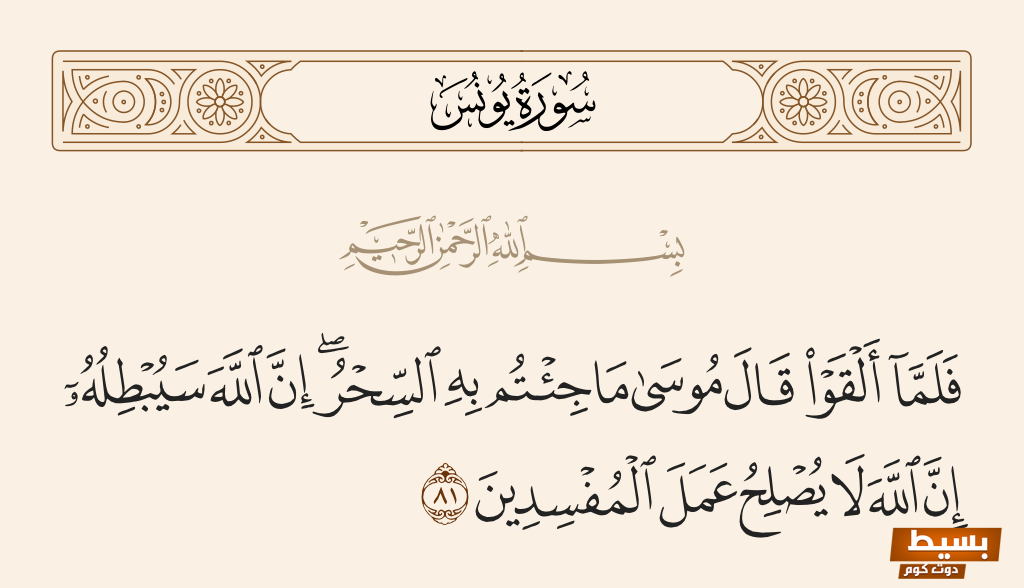 سُورَةُ يُونُسَ
بِسْمِ ٱللَّهِ ٱلرَّحْمَٰنِ ٱلرَّحِيمِ
فَلَمَّآ أَلْقَوْا۟ قَالَ مُوسَىٰ مَا جِئْتُم بِهِ ٱلسِّحْرُ ۖ إِنَّ ٱللَّهَ سَيُبْطِلُهُۥٓ
إِنَّ ٱللَّهَ لَا يُصْلِحُ عَمَلَ ٱلْمُفْسِدِينَ ٨١
بسيط
دوت كوم